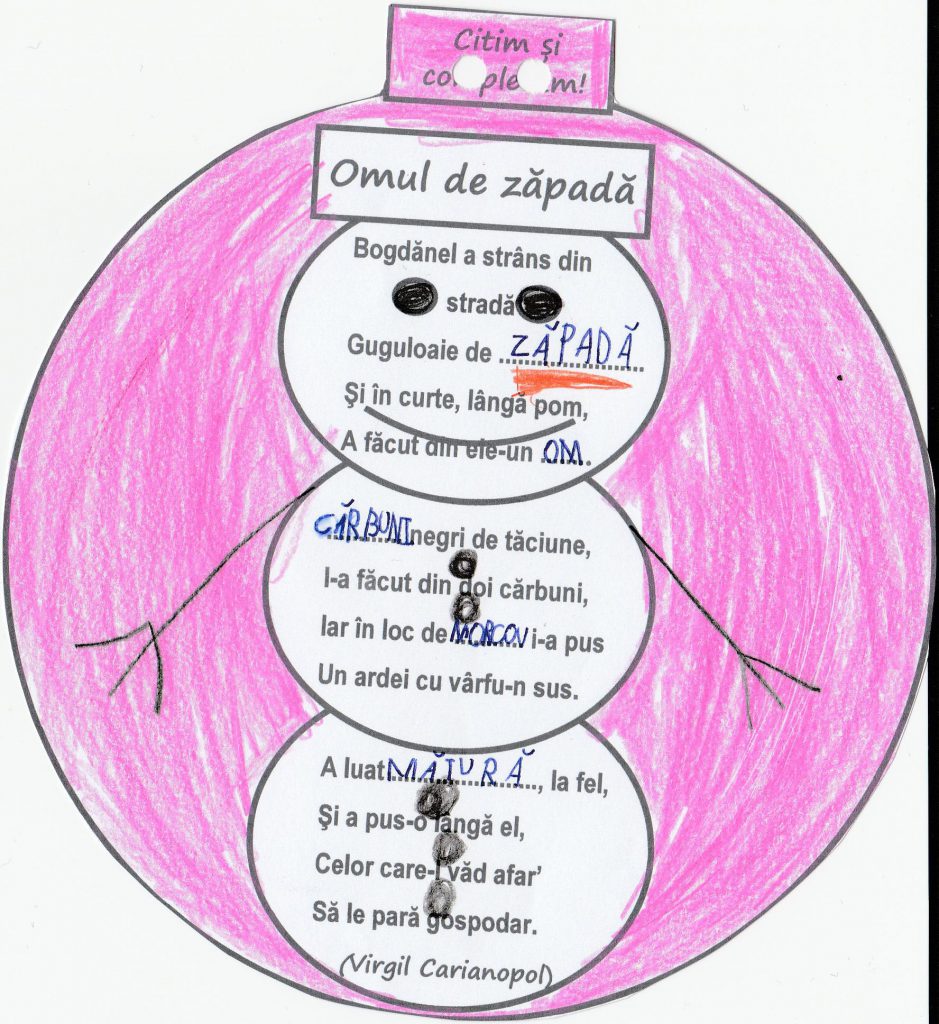 Citim și
completăm!
Omul de zăpadă
Bogdănel a strâns din
stradă
Guguloaie de ZĂPADĂ
Şi în curte, lângă pom,
A făcut din ele-un OM.
CĂRBUNI negri de tăciune,
I-a făcut din doi cărbuni,
Iar în loc de MORCOV i-a pus
Un ardei cu vârfu-n sus.
A luat MĂTURĂ, la fel,
Şi a pus-o lângă el,
Celor care-l văd afar’
Să le pară gospodar.
(Virgil Carianopol)